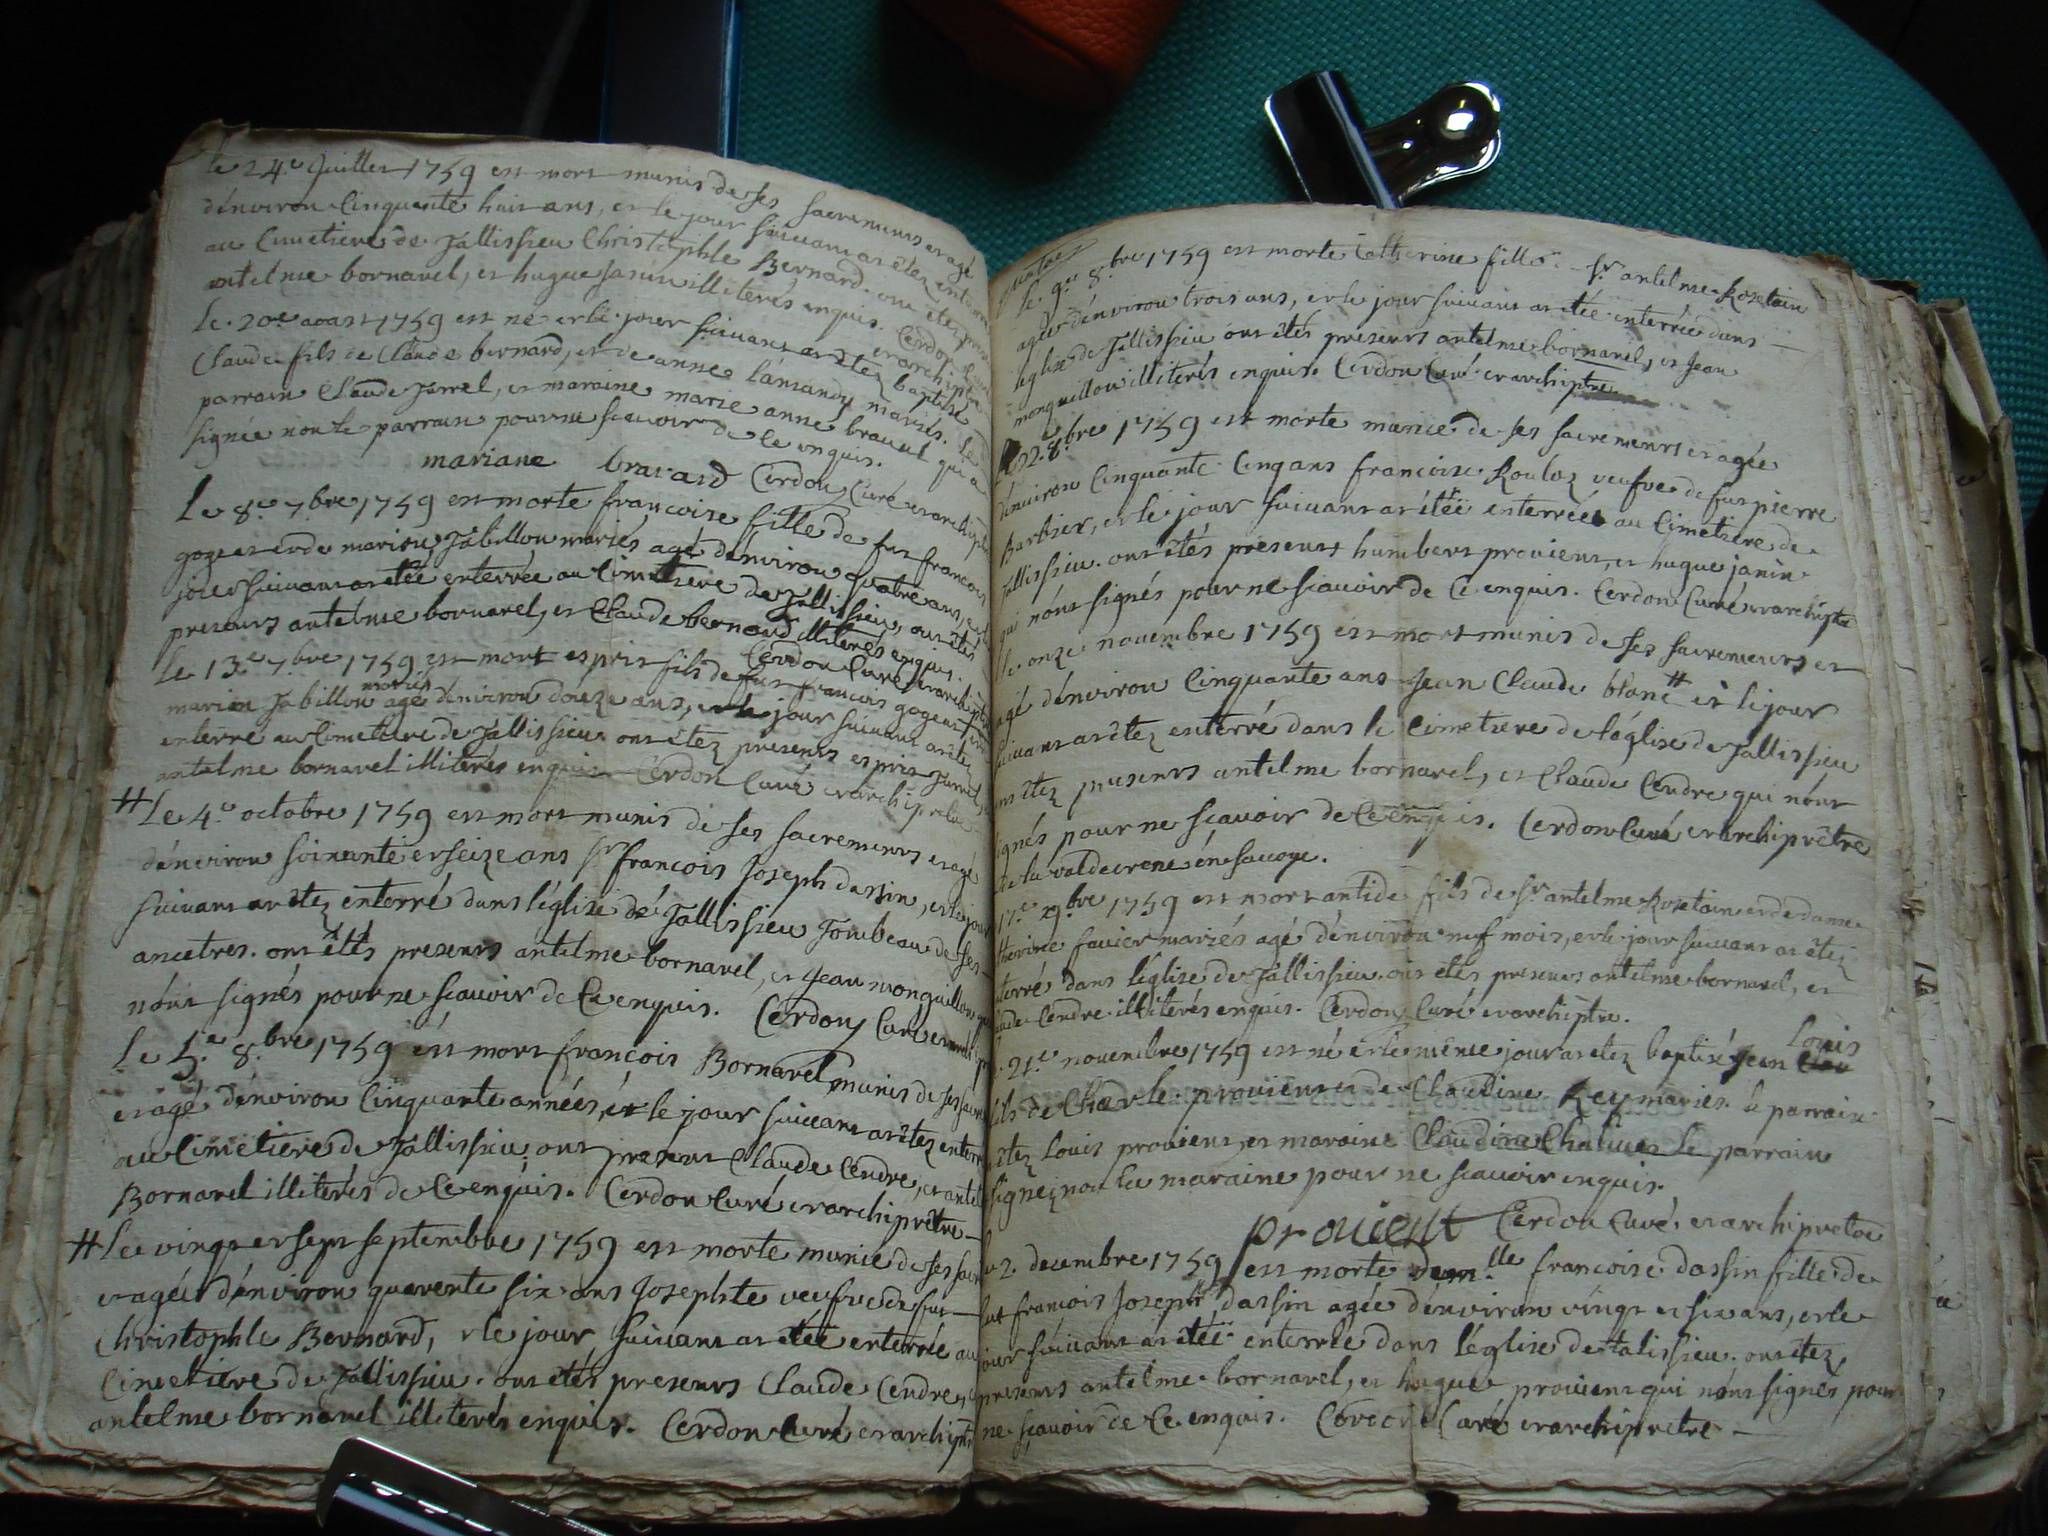 le 24.e Juillet 1759 est mort munis de ses sacrements et agé
d'environ Cinquante huit ans, et le jour suivant at étéz enterré
au Cimetiere de Tallissieu Christophle Bernard. ont étez
antelme bornarel, et hugue Janin illiterés enquis. Cerdon Curé
et archiptre
Le 20.e aoast 1759 est né et le jour suivant at étéz baptisé
Claude fils de Claude bernard, et de anne lamandy mariés. le
parrain Claude Jarrel, et maraine marie anne bravard qui a
signée non le parrain pour ne sçauoir de ce enquis.
mariane bravard Cerdon Curé et archiptre
Le 8.e 7.bre 1759 est morte françoise fille de fut francois
goge et de marion Jabillon mariés agé d'environ quatre ans, et le
jour suivant at étée enterrée au Cimetiere de Tallissieu, ont étés
presents antelme bornarel, et Claude bernard illiterés enquis.
Cerdon Curé et archiptre
le 13.e 7.bre 1759 est mort espris fils de fut francois goge et
marion Jabillon mariés agé d'environ douze ans, et le jour suivant at étéz
enterré au Cimetiere de Tallissieu ont étez presents espris Jarrel,
antelme bornarel illiterés enquis Cerdon Curé et archiptre
# Le 4.e octobre 1759 est mort munis de ses sacrements et agé
d'environ soixante et seize ans sr francois Joseph dassin, et le jour
suivant at étez enterré dans l'église de Tallissieu Tombeau de ses
ancetres. ont étés presents antelme bornarel, et Jean monguillon qui
n'ont signés pour ne sçauoir de Ce enquis. Cerdon Curé et archip
Le 5.e 8.bre 1759 est mort françois Bornarel munis de ses sacre
et agé d'environ Cinquante années, et le jour suivant at étez enterré
au Cimetiere de Tallissieu ont present Claude Cendre, et antel
Bornarel illiterés de Ce enquis. Cerdon Curé et archiprêtre
# Le vingt et sept septembre 1759 est morte munie de ses sacr
et agée d'environ quarente six ans Josephte veufve de fut
Christophle Bernard, et le jour suivant at étée enterrée au
Cimetiere de Tallissieu. ont étés presents Claude Cendre, et
antelme bornarel illiterés enquis. Cerdon Curé et archiptr
le 9.e 8.bre 1759 est morte Catherine fille sr antelme Rosetain
agée d'environ trois ans, et le jour suivant at étée enterrée dans
leglise de Tallissieu ont étés presents antelme bornarel, et Jean
monguillon illiterés enquis. Cerdon Curé et archiptre
Le 22.e 8.bre 1759 est morte munie de ses sacrements et agée
d'environ Cinquante Cinq ans francoise Rouloz veufve de fut pierre
Barbier, et le jour suivant at étée enterrée au Cimetiere de
Tallissieu. ont étés presents humbert provient, et hugue janin
qui n'ont signés pour ne sçauoir de Ce enquis. Cerdon Curé et archiptre
le onze novembre 1759 est mort munis de ses sacrements et
agé d'environ Cinquante ans Jean Claude blanc # et le jour
suivant at étez enterré dans le Cimetiere de l'église de Tallissieu
ont étez presents antelme bornarel, et Claude Cendre qui n'ont
signés pour ne sçauoir de Ce enquis. Cerdon Curé et archiprêtre
# de la valdecrene en sauoye.
17.e 9.bre 1759 est mort antide fils de sr antelme Rosetain et de dame
favier mariés agé d'environ neuf mois, et le jour suivant at étéz
enterré dans l'église de Tallissieu. ont étés presents antelme bornarel, et
Claude Cendre illiterés enquis. Cerdon Curé et archiptre.
21.e novembre 1759 est né et le même jour at étez baptisé Jean Louis
fils de Charle provient et de Claudine Rey mariés. le parrain
étez Louis provient, et maraine Claudine Le parrain
signez non la maraine pour ne sçauoir enquis.
provient Cerdon Curé et archipretre
2. decembre 1759 est morte dem.lle francoise dassin fille de
fut francois Joseph dassin agée d'environ vingt et six ans, et le
jour suivant at étée enterrée dans l'église de talissieu. ont étez
presents antelme bornarel, et hugue provient qui n'ont signés pour
ne sçauoir de Ce enquis. Cerdon Curé et archipretre